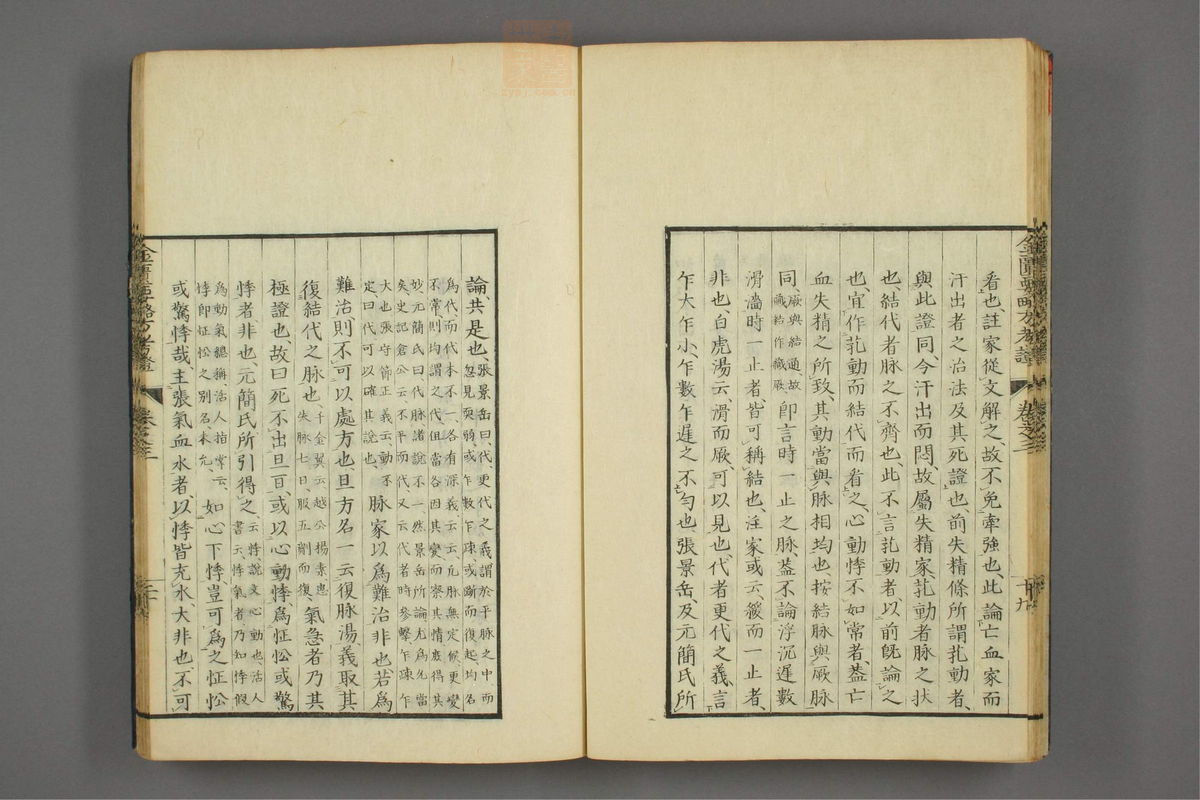 看也、註家從文解之、故不免牽強也、此論亡血家而
汗出者之治法及其死證也、前失精條所謂芤動者、
與此證同、今汗出而悶、故屬失精家芤動者脉之狀
也、結代者脉之不齊也、此不言芤動者、以前既論之
也、宜作芤動而結代而看之、心動悸不如常者、蓋亡
血失精之所致、其動當與脉相均也、按結脉與厥脉
同、厥與結通、故
厥結作
即言時一止之脉、蓋不論浮沉遲數
滑濇時一止者、皆可稱結也、注家或云、緩而一止者、
非也、白虎湯云、滑而厥、可以見也、代者更代之義、言
乍大乍小、乍數乍遲之不勻也、張景岳及元簡氏所
金匱要略方考證 卷之三 廿九
論、共是也、張景岳曰、代、更代之義、謂於平脉之中、而
忽見耎弱、或乍數乍疎、或斷而復起、均名
為代、而代本不一、各有深義云云、凡脉無定候、更變
不常、則均謂之代、但當各因其變而察其情、庶得其
妙、元簡氏曰、代脉諸說不一、然景岳所論尤為允當
矣、史記倉公云、不平而代、又云、代者時參擊、乍疎乍
大也、張守節正義云、動不
定曰代、可以確其說也、
脉家以為難治非也、若為
難治、則不可以處方也、且方名一云復脉湯、義取其
復結代之脉也、千金翼云、越公楊素患
失脉七日、服五劑而復、
氣急者乃其
極證也、故曰死、不出旦、或以心動悸為怔忪或驚
悸者非也、元簡氏所引得之、云、悸、說文、心動也、活人
書云、悸氣者、乃知悸假
為動氣總稱、活人指掌云、
悸即怔忪之別名、未允、
如心下悸、豈可為之怔忪
或驚悸哉、主張氣血水者、以悸皆充水、大非也、不可
金匱要略方考證 卷之三